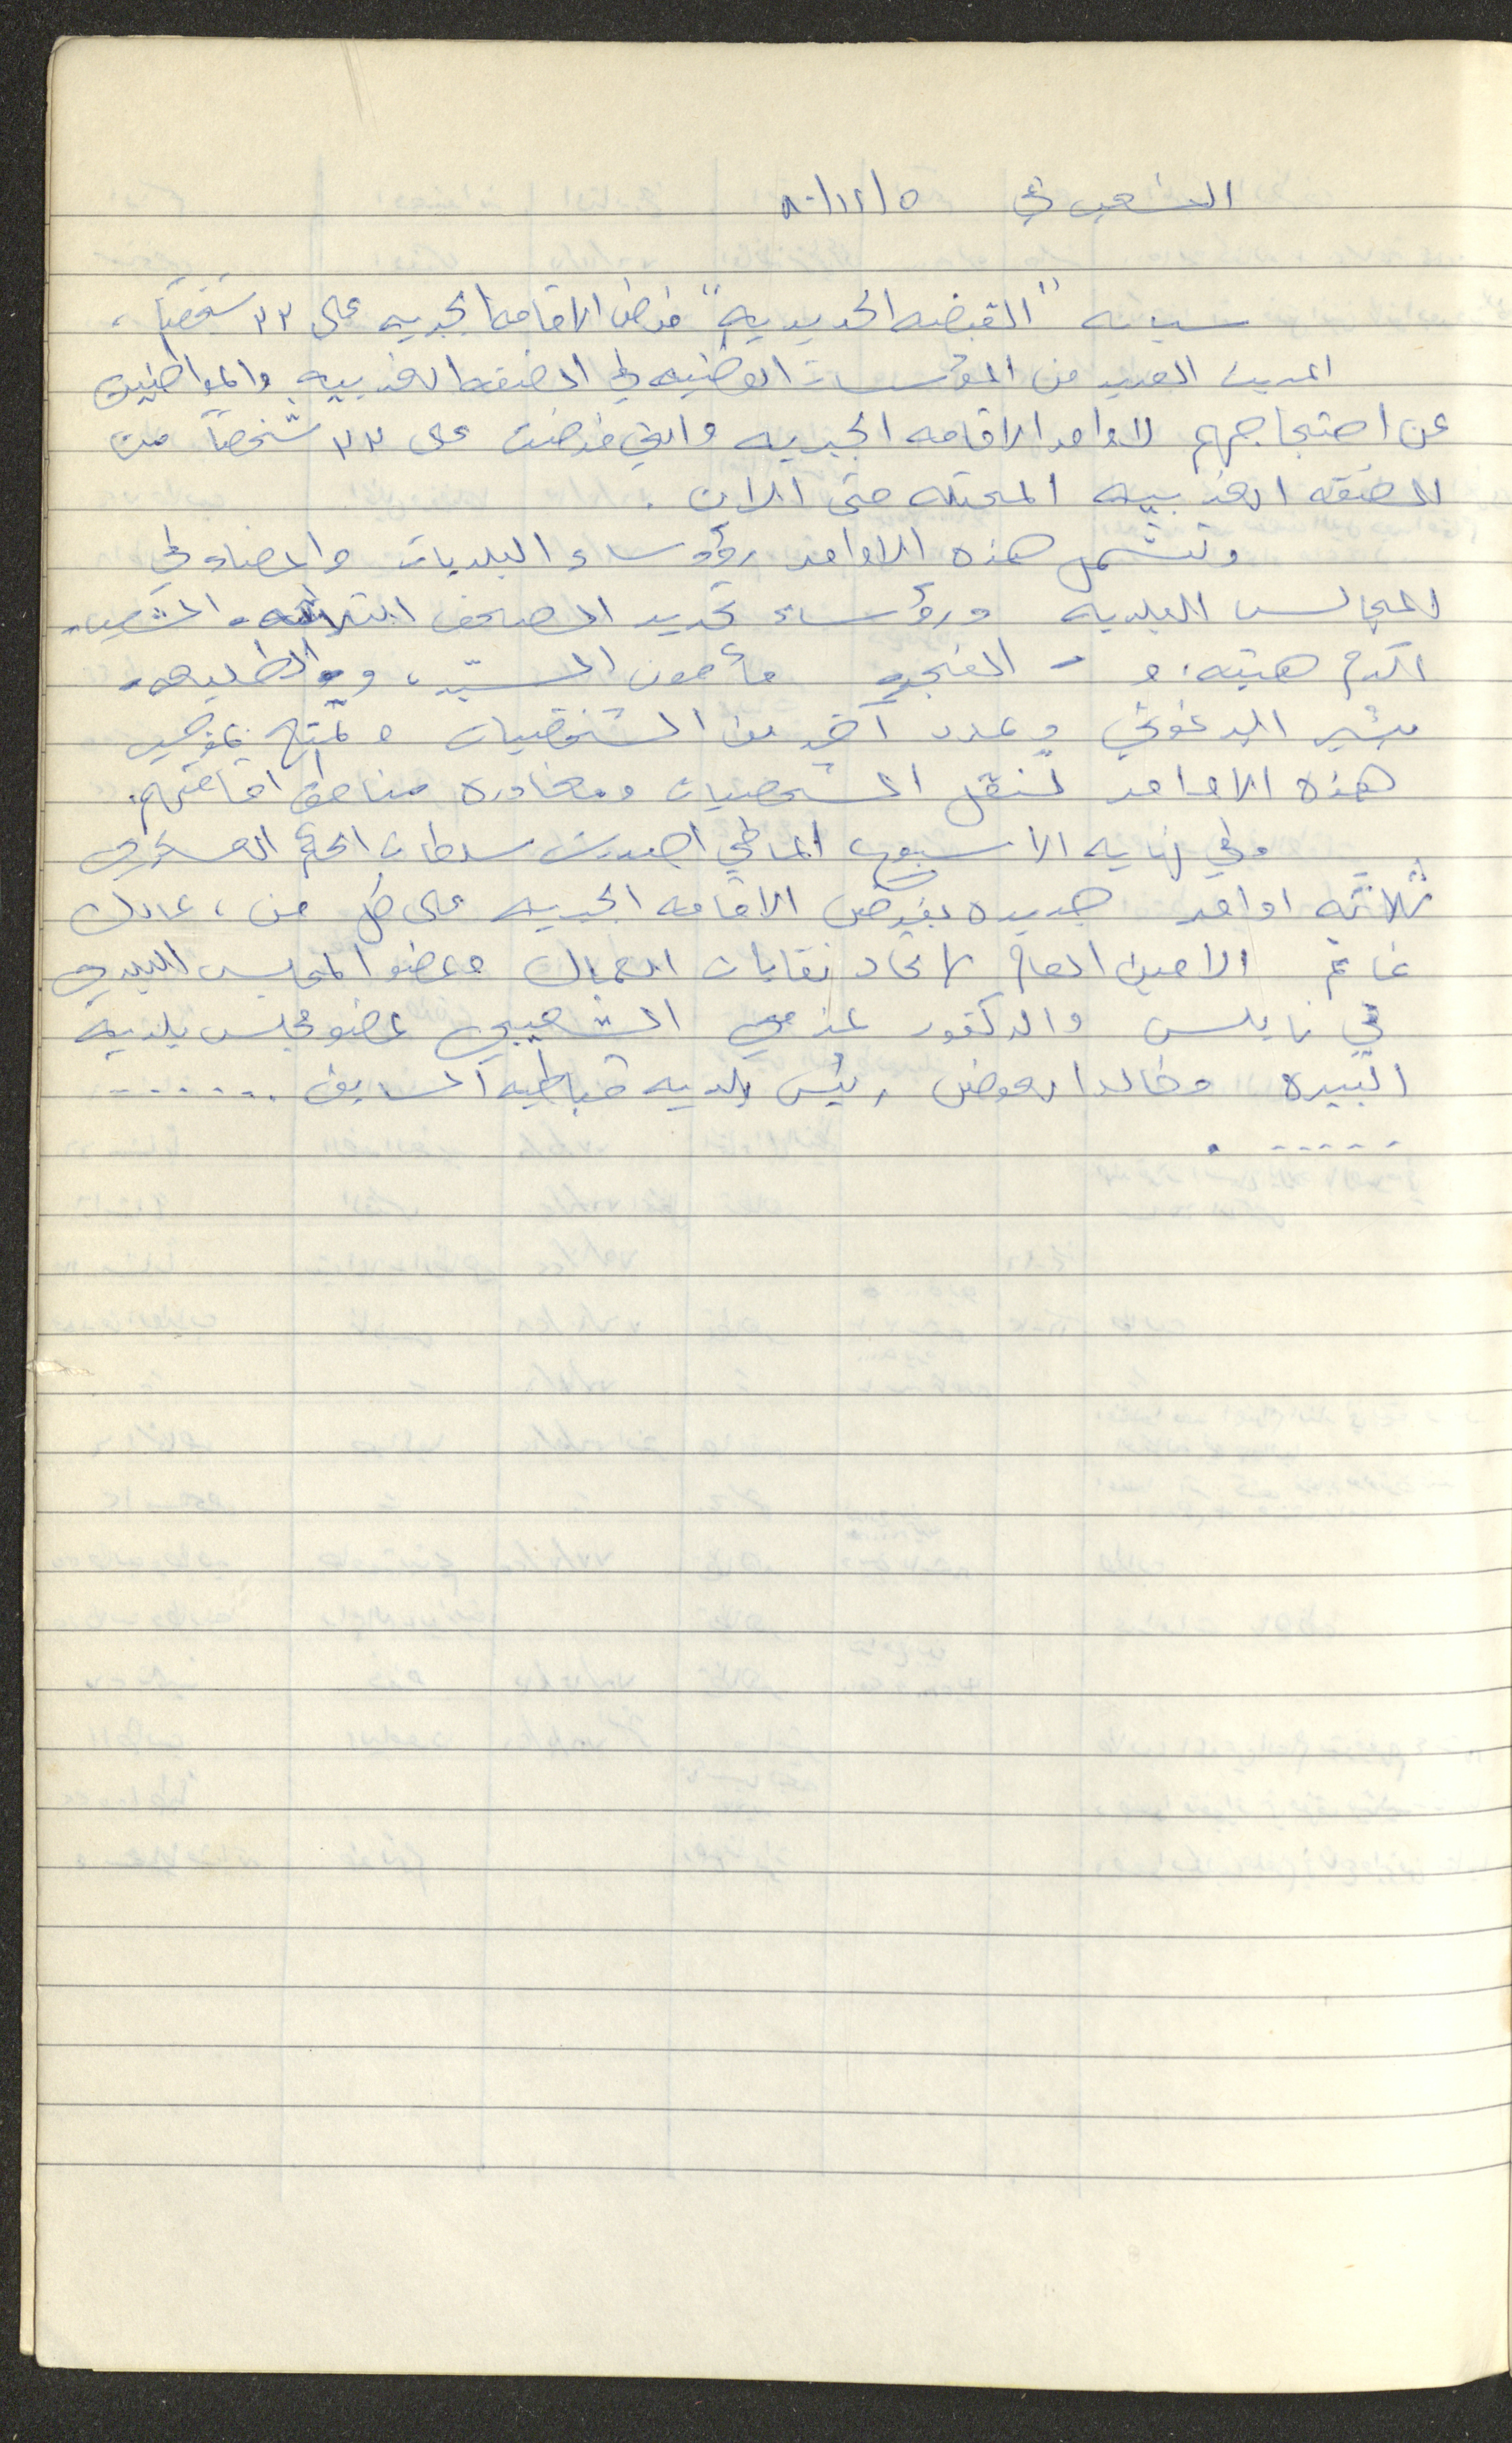 الشعب في ٥/١٢/٨٠
سياسه "القبضه الحديديه" فرض الاقامه الجبريه على ٢٣ شخصياً،
اعربت العديد من المؤسسات الوطنيه في الضفه الغربيه والمواطنين
عن احتجاجهم لاوامر الاقامه الجبريه والتي فرضت على ٢٣ شخصاً من
الضفه الغربيه المحتله حتى الان .
وتشمل هذه الاوامر رؤوساء البلديات واعضاء في
المجالس البلديه ورؤساء تحرير الصحف الثلاثه - الشعب -
اكرم هنيه، و - الفجر مأمون السيد، و الطليعه -
بشير البرغوثي وعدد آخر من الشخصيات وتمنع بموجب
هذه الاوامر تنقل الشخصيات ومغادره مناطق اقامتهم.
وفي نهايه الاسبوع الماضي اصدرت سلطات الحكم العسكري
ثلاثه اوامر جديده بفرض الاقامه الجبريه على كل من ، عادل
غانم الامين العام لاتحاد نقابات العمال وعضو المجلس البلدي
في نابلس والدكتور عزمي الشعيبي عضو مجلس بلدية
البيره وخالد العوض رئيس بلديه قباطيه السابق ......
...... .